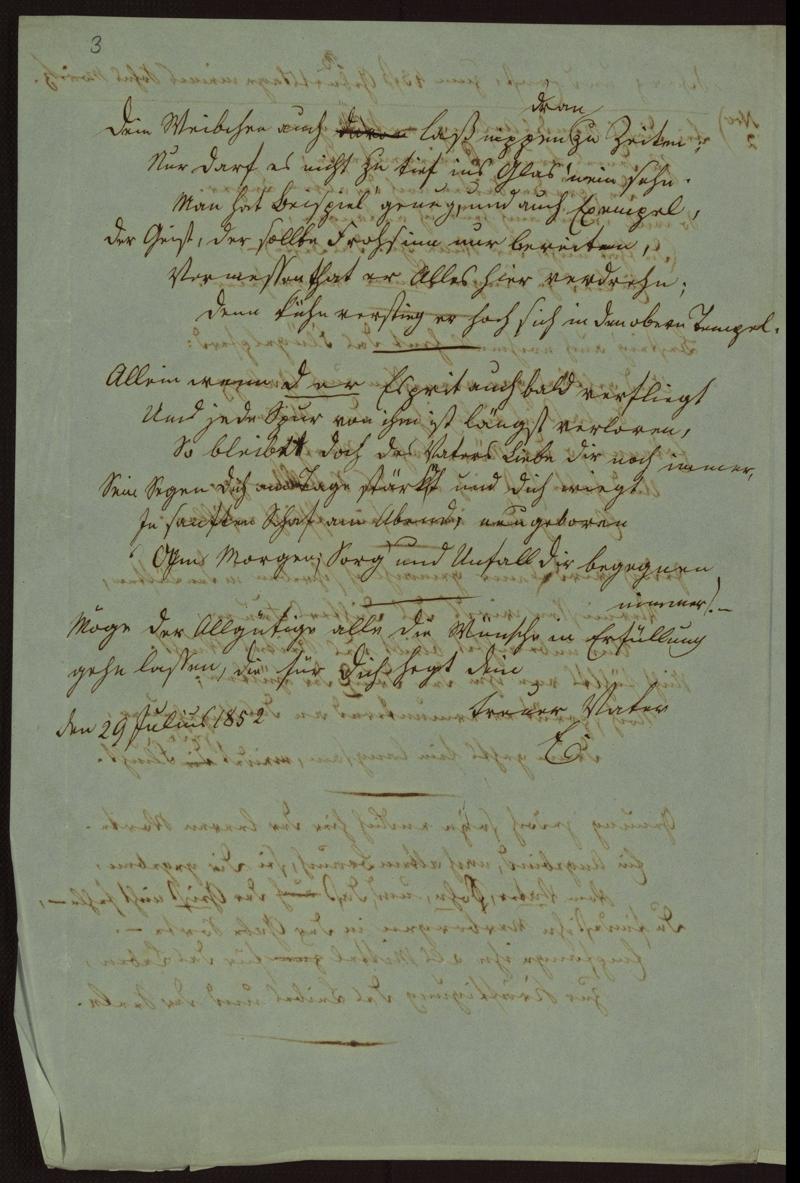 3
dran
Dein Weibchen auch davon laß nippen zu Zeiten;
Nur darf es nicht zu tief ins Glas 'nein sehn.
Man hat Beispiel' genug, und auch Exempel,
Der Geist, der sollte Frohsinn nur bereiten,
Vermessen that er Alles hier verdrehn;
Denn kühn verstieg er hoch sich in den obern Tempel.
Allein wenn der Esprit auch bald verfliegt
Und jede Spur von ihm ist längst verloren,
So bleibet doch des Vaters Liebe dir noch immer,
Sein Segen dich am Tage stärkt und dich wiegt
In sanften Schlaf am Abend, neugeboren
Am Morgen; Sorg' und Unfall dir begegnen
nimmer! –
Möge der Allgütige alle die Wünsche in Erfüllung
gehn lassen, die für Dich hegt dein
treuer Vater
den 29 Julius 1852
E